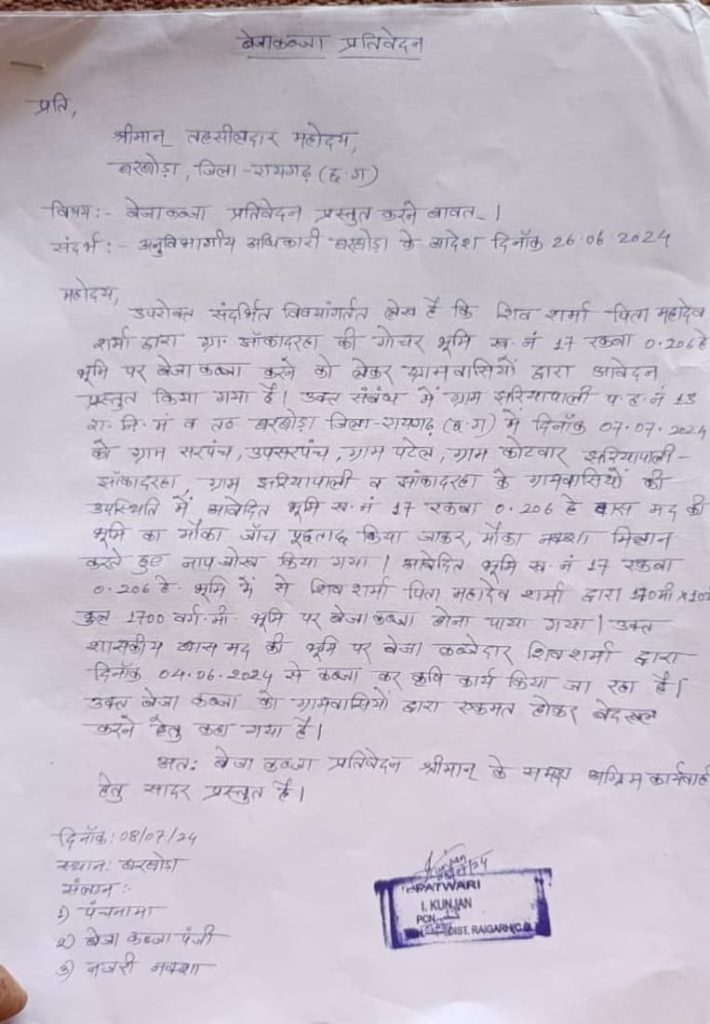 बेजाकब्जा प्रतिवेदन
प्रति,
श्रीमान् तहसीलदार महोदय,
घरघोड़ा, जिला-रायगढ़ (छ.ग)
विषय:- बेजाकब्जा प्रतिवेदन प्रस्तुत करने बावत्।
संदर्भ:- अनुविभागीय अधिकारी घरघोड़ा के आदेश दिनाँक 26.06.2024
महोदय,
उपरोक्त संदर्भित विषयांगर्तत लेख है कि शिव शर्मा पिता महादेव
शर्मा द्वारा ग्रा. झाँकादरहा की गोचर भूमि ख.नं 17 रकबा 0.206 हे
भूमि पर बेजा कब्जा करने को लेकर ग्रामवासियों द्वारा आवेदन
प्रस्तुत किया गया है। उक्त संबंध में ग्राम झरियापाली प.ह.नं 13
रा.नि.मं व तह घरघोड़ा जिला-रायगढ़ (छ.ग) में दिनाँक 07.07.2024
को ग्राम सरपंच, उपसरपंच, ग्राम पटेल, ग्राम कोटवार झरियापाली-
झाँकादरहा, ग्राम झरियापाली व झांकादरहा के ग्रामवासियों की
उपस्थिति में आवेदित भूमि ख.नं 17 रकबा 0.206 हे घास मद की
भूमि का मौका जाँच पूछताछ किया जाकर, मौका नक्शा मिलान
करते हुए नाप जोख किया गया। आवेदित भूमि ख.नं 17 रकबा
0.206 हे. भूमि में से शिव शर्मा पिता महादेव शर्मा द्वारा 170मी x10
कुल 1700 वर्ग.मी. भूमि पर बेजा कब्जा होना पाया गया। उक्त
शासकीय घास मद की भूमि पर बेजा कब्जेदार शिव शर्मा द्वारा
दिनाँक 04.06.2024 से कब्जा कर कृषि कार्य किया जा रहा है।
उक्त बेजा कब्जा को ग्रामवासियों द्वारा एकमत होकर बेदखल
करने हेतु कहा गया है।
अतः बेजा कब्जा प्रतिवेदन श्रीमान् के समक्ष अग्रिम कार्यवाही
हेतु सादर प्रस्तुत है।
दिनाँक: 08/07/24
स्थान: घरघोड़ा
संलग्न :-
1) पंचनामा
2) बेजा कब्जा पंजी
3) नजरी नक्शा
PATWARI
I. KUNJAN
PCN. 13
DIST. RAIGARH(C.G.